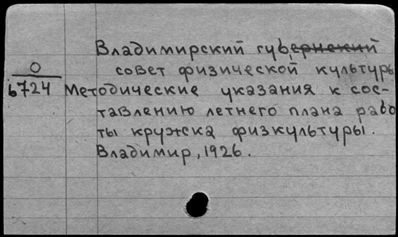 Владимирский губернский
О
совет физической культуры
б724 Методические указания к сос-
тавлению летнего плана рабо
ты кружска физкультуры.
Владимир, 1926.